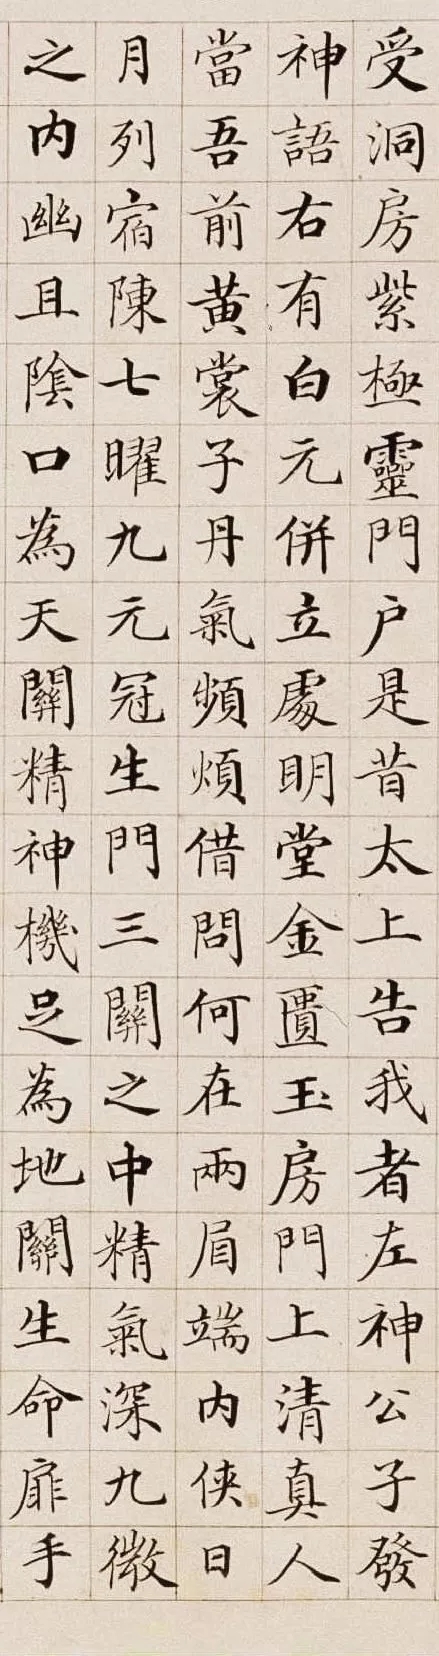 受洞房紫極靈門户是昔太上告我者左神公子發
神語右有白元併立處明堂金匱玉房門上清真人
當吾前黃裳子丹氣頻煩借問何在兩眉端内俠日
月列宿陳七曜九元冠生門三關之中精氣深九微
之内幽且陰口為天關精神機足為地關生命扉手